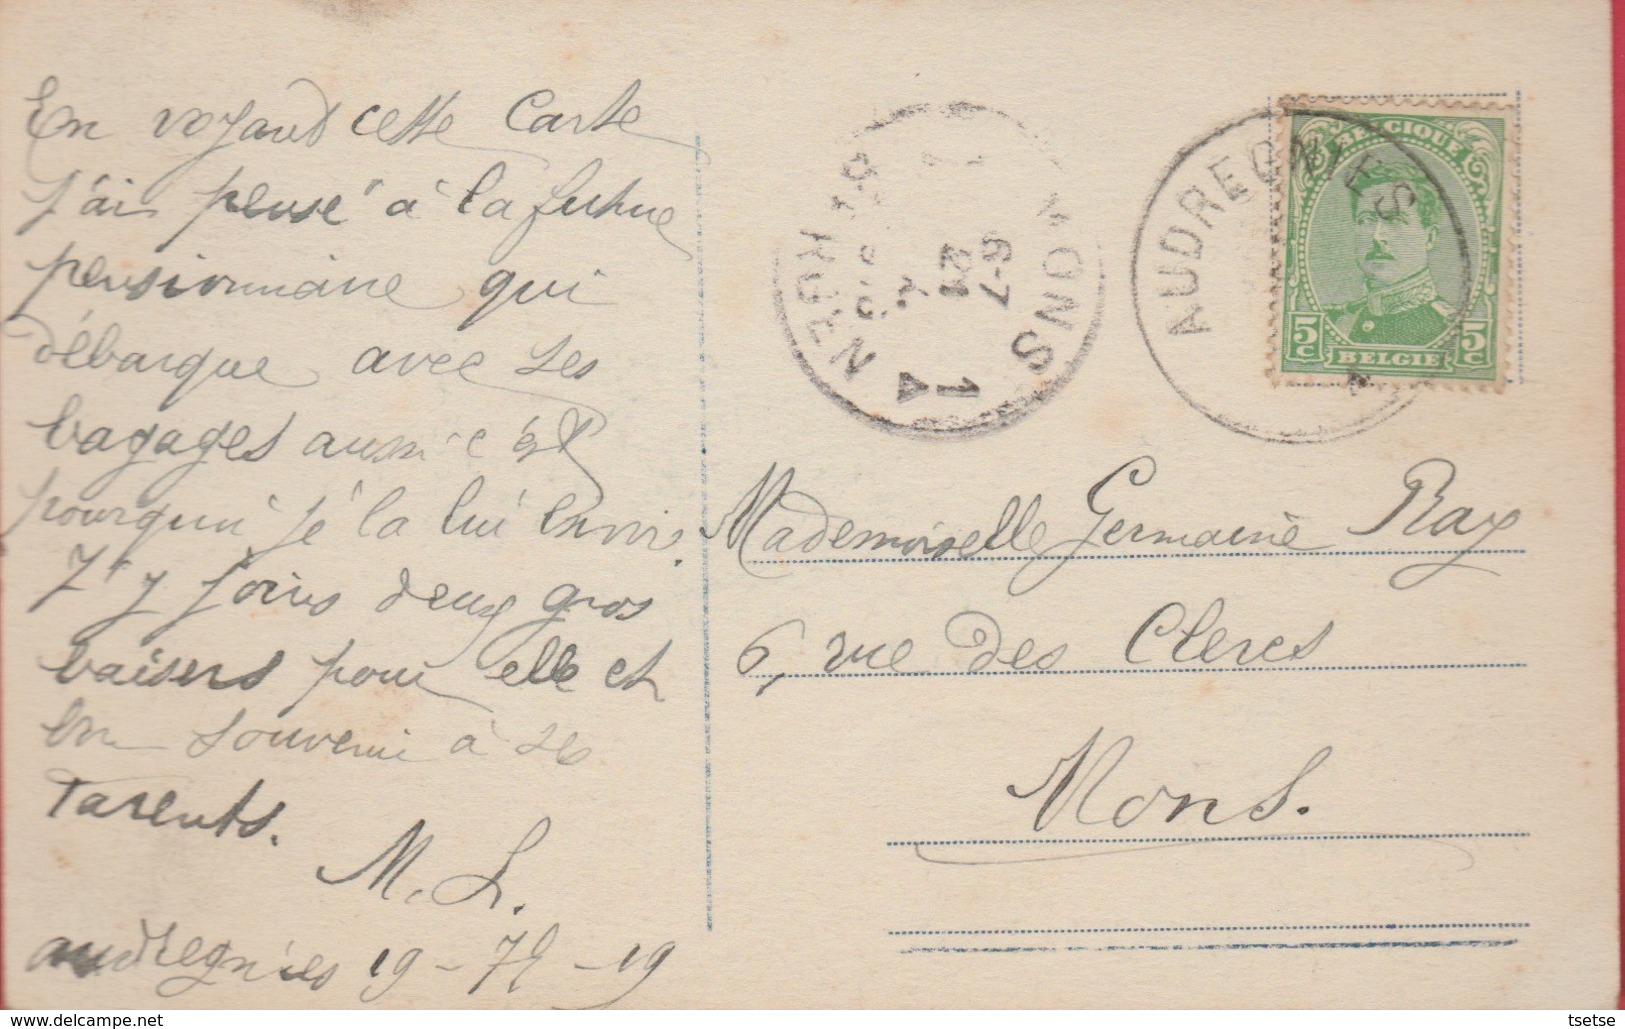 En voyant cette Carte
j'ai pensé à la future
pensionnaire qui
débarque avec ses
bagages aussi c'est
pourquoi je la lui envoi.
J'y joins deux gros
baisers pour elle et
en souvenir à ses
Parents.
M. L.
audregnies 19 - 7h - 19
MONS 1A BERGEN
6-7
21
AUDREGNIES
BELGIQUE
5c BELGIË 5c
Mademoiselle Germaine Ray
6, rue des Clercs
Mons.
tsetse